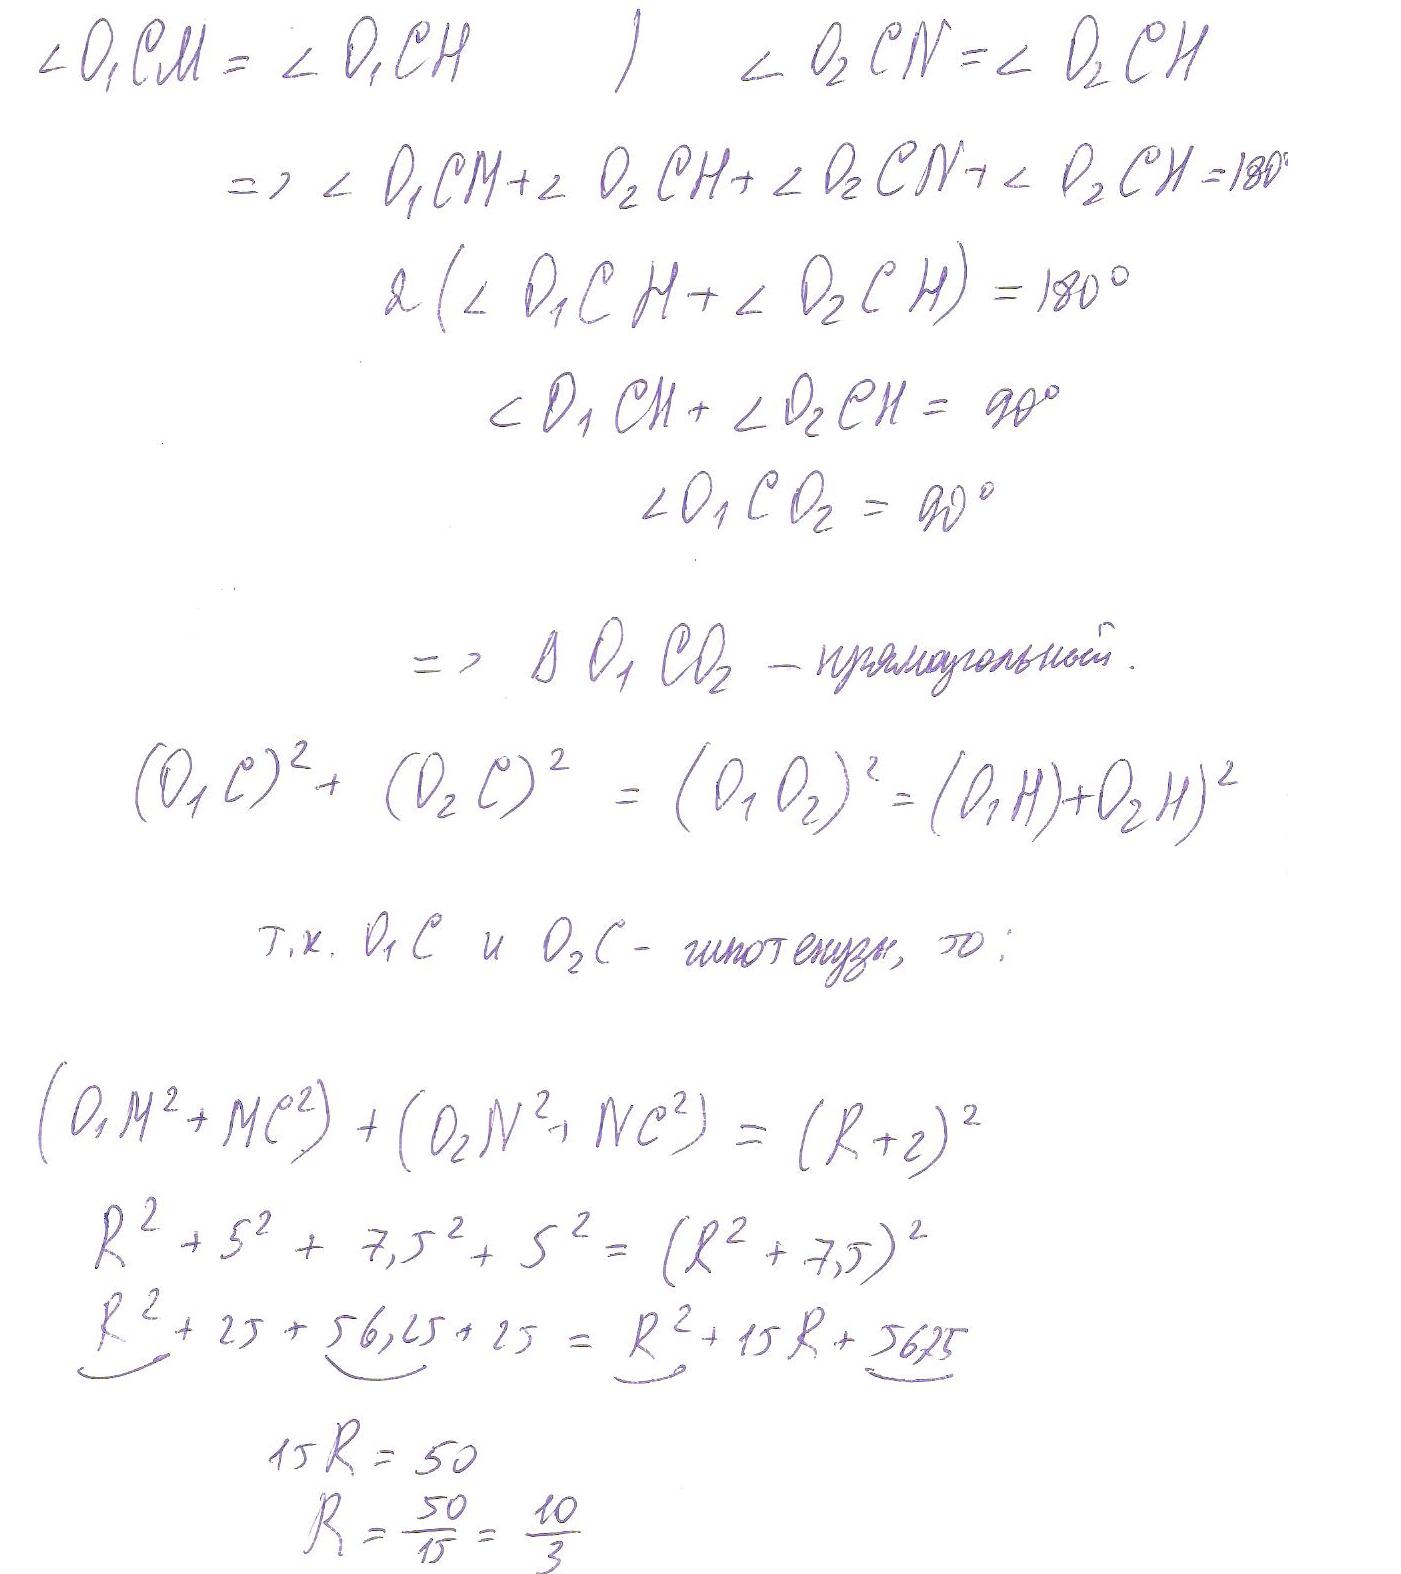 ∠O₁CM = ∠O₁CH ) ∠O₂CN = ∠O₂CH
=> ∠O₁CM + ∠O₂CH + ∠O₂CN + ∠O₂CH = 180°
2(∠O₁CH + ∠O₂CH) = 180°
∠O₁CH + ∠O₂CH = 90°
∠O₁CO₂ = 90°
=> Δ O₁CO₂ – прямоугольный.
(O₁C)² + (O₂C)² = (O₁O₂)² = (O₁H)+O₂H)²
т.к. O₁C и O₂C - гипотенузы, то:
(O₁M² + MC²) + (O₂N² + NC²) = (R + r)²
R² + 5² + 7,5² + 5² = (R² + 7,5)²
R² + 25 + 56,25 + 25 = R² + 15R + 5625
15R = 50
R = 50/15 = 10/3